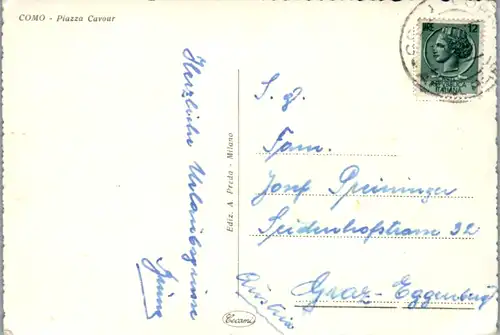 COMO - Piazza Cavour
Herzliche Urlaubsgrüße
Ediz. A. Preda - Milano
S. g.
Fam.
Josef Preininger
Seidenhofstrasse 32
Graz-Eggenberg
Austria
LIRE 12